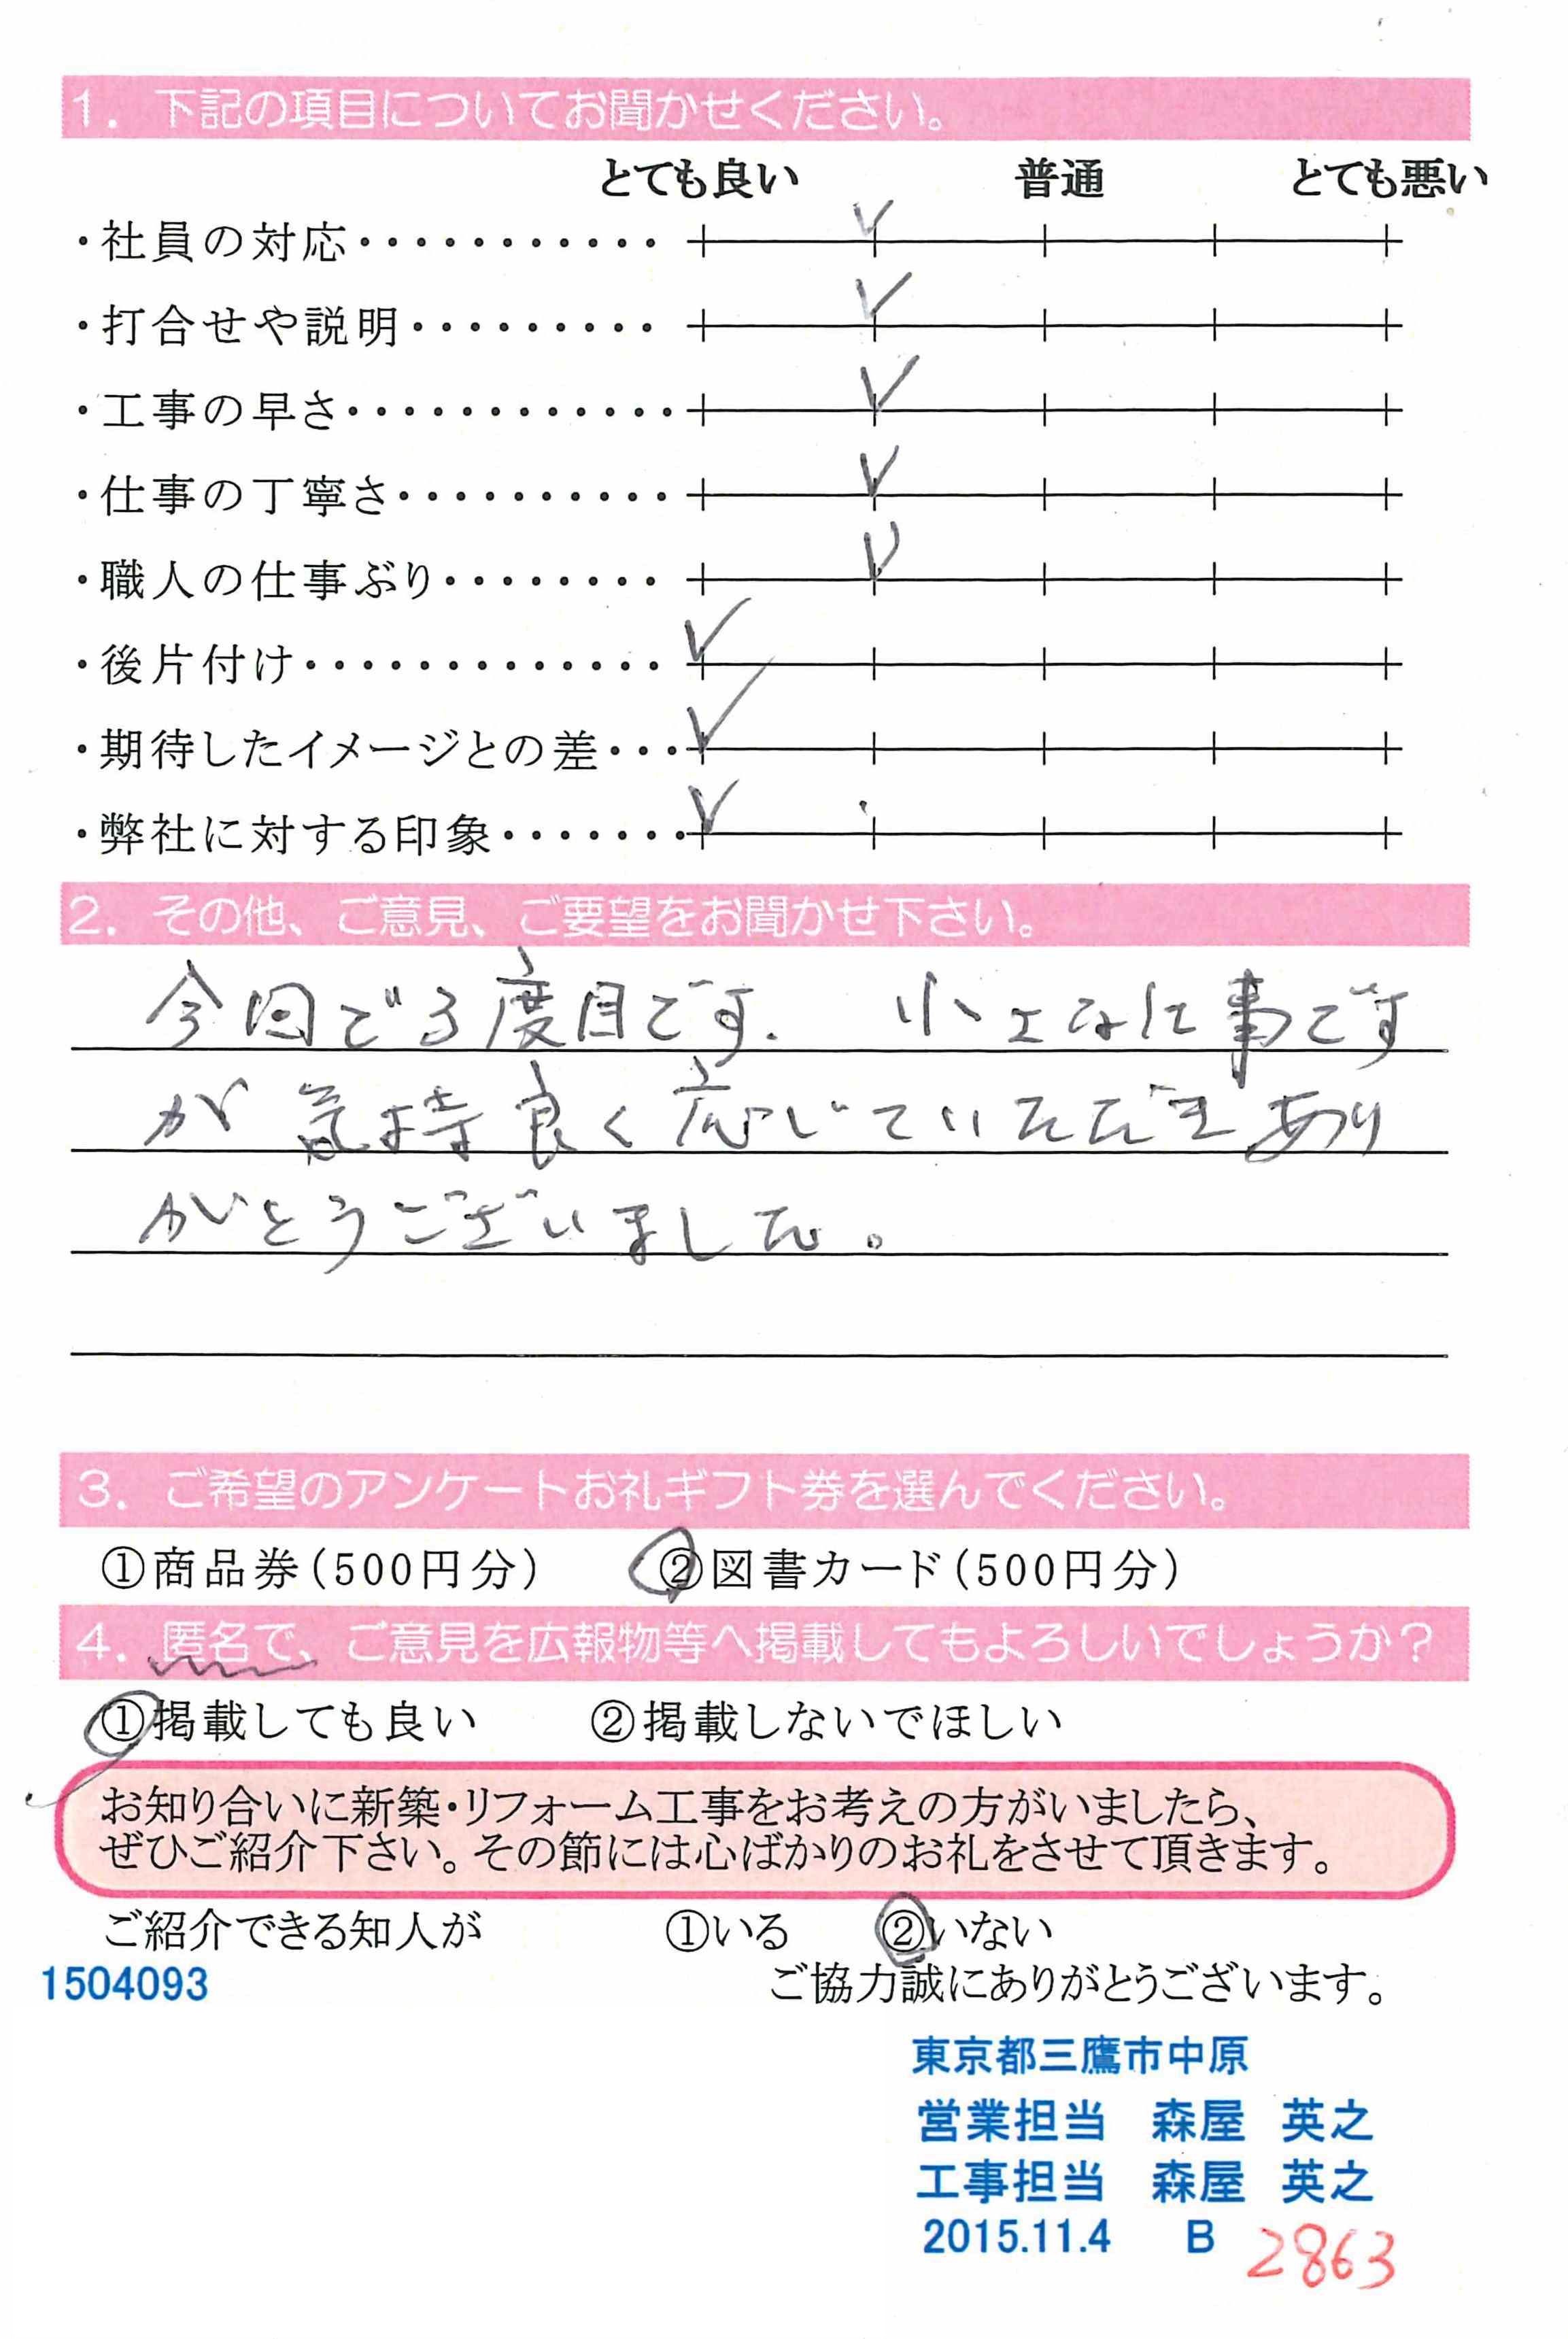 1. 下記の項目についてお聞かせください。
とても良い 普通 とても悪い
・社員の対応・・・・・・・・・・・
・打合せや説明・・・・・・・・・
・工事の早さ・・・・・・・・・・・・
・仕事の丁寧さ・・・・・・・・・・
・職人の仕事ぶり・・・・・・・・
・後片付け・・・・・・・・・・・・・
・期待したイメージとの差・・・
・弊社に対する印象・・・・・・・
2. その他、ご意見、ご要望をお聞かせ下さい。
今回で3度目です. 小さな仕事です
が 気持良く応じていただきあり
がとうございました。
3. ご希望のアンケートお礼ギフト券を選んでください。
①商品券(500円分) ②図書カード(500円分)
4. 匿名で、ご意見を広報物等へ掲載してもよろしいでしょうか?
①掲載しても良い ②掲載しないでほしい
お知り合いに新築・リフォーム工事をお考えの方がいましたら、
ぜひご紹介下さい。その節には心ばかりのお礼をさせて頂きます。
ご紹介できる知人が ①いる ②いない
1504093 ご協力誠にありがとうございます。
東京都三鷹市中原
営業担当 森屋 英之
工事担当 森屋 英之
2015.11.4 B 2863